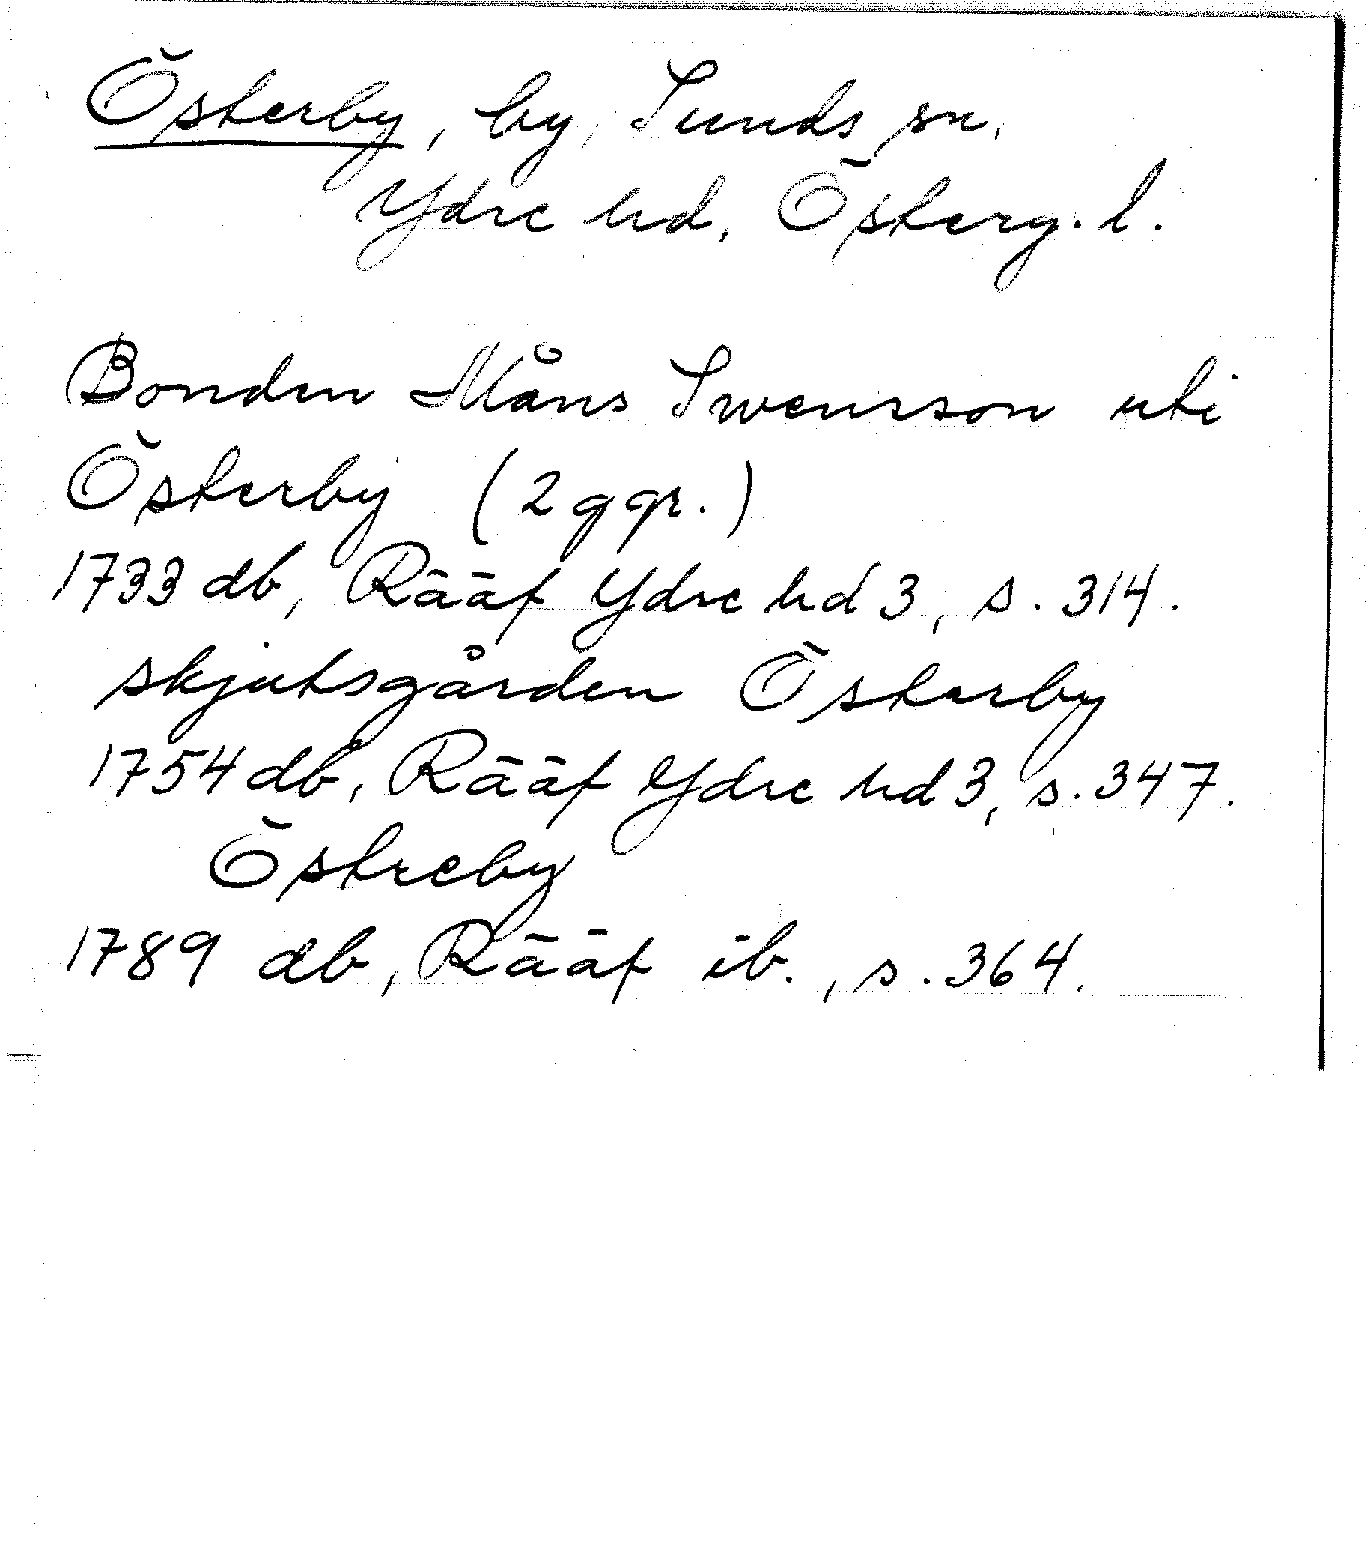 Österby, by, Sunds sn.
Ydre hd, Österg. l.
Bonden Måns Swensson uti
Österby (2 ggr.)
1733 db, Rääf Ydre hd 3, s. 314.
skjutsgården Österby
1754 db, Rääf Ydre hd 3, s. 347.
Östreby
1789 db, Rääf ib., s. 364.